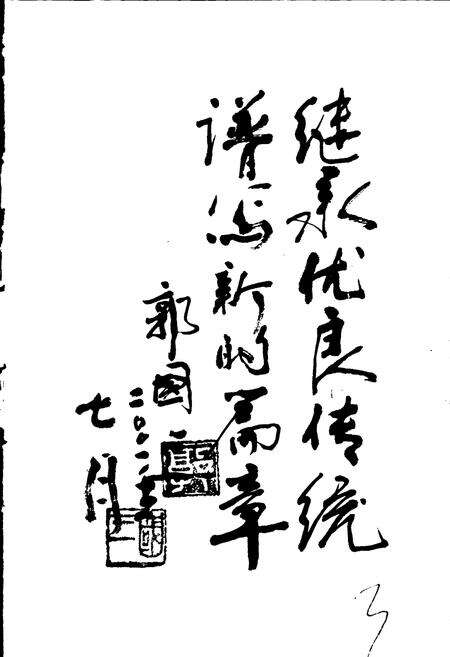 继承优良传统
谱写新的篇章
郭国
二〇〇
七月